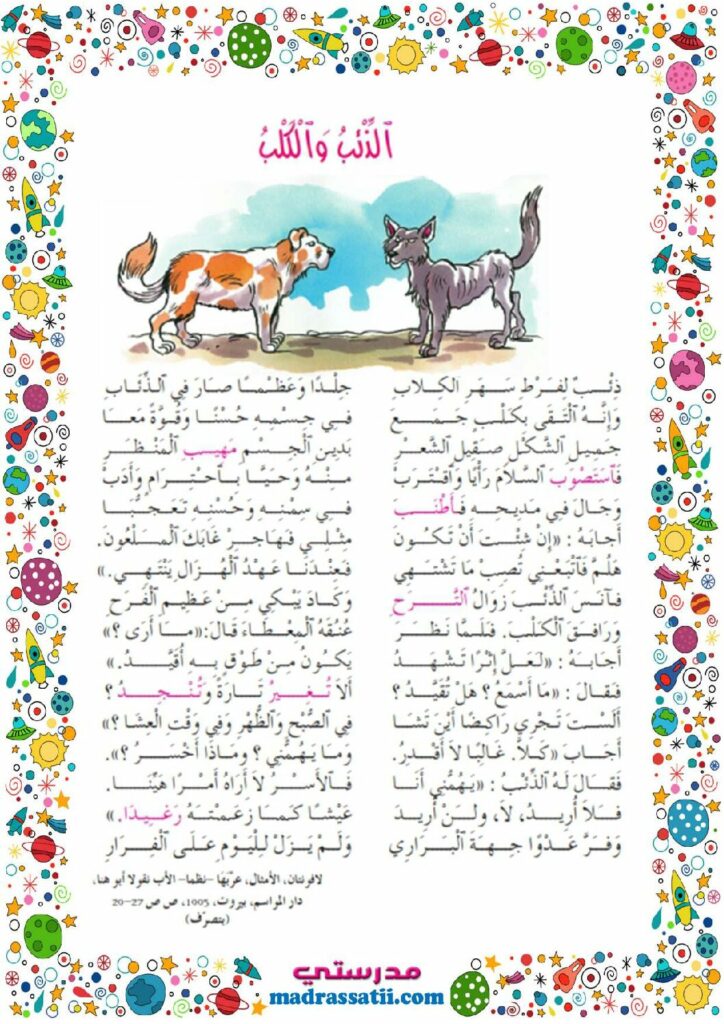 الذِّئْبُ وَالْكَلْبُ
ذِئْبٌ لِفَرْطِ سَهَرِ الكِلابِ جِلْدًا وَعَظْمًا صَارَ فِي الذِّئَابِ
وَإِنَّهُ الْتَقَى بِكَلْبٍ جَمَعَ فِي جِسْمِهِ حُسْنًا وَقُوَّةً مَعَا
جَمِيلِ الشَّكْلِ صَقِيلِ الشَّعْرِ بَدِينِ الْجِسْمِ مَهِيبِ الْمَنْظَرِ
فَاسْتَصْوَبَ السَّلَامَ رَأْيًا وَاقْتَرَبْ مِنْهُ وَحَيَّا بِاحْتِرَامٍ وَأَدَبْ
وَجَالَ فِي مَدِيحِهِ فَأَطْنَبَ فِي سِمْنِهِ وَحُسْنِهِ تَعَجُّبَا
أَجَابَهُ : «إِنْ شِئْتَ أَنْ تَكُونَ مِثْلِي فَهَاجِرْ غَابَكَ الْمَلْعُونَ.
هَلُمَّ فَاتْبَعْنِي تُصِبْ مَا تَشْتَهِي فَعِنْدَنَا عَهْدُ الْهُزَالِ يَنْتَهِي.»
فَآنَسَ الذِّئْبُ زَوَالَ التَّرَحِ وَكَادَ يَبْكِي مِنْ عَظِيمِ الْفَرَحِ
وَرَافَقَ الْكَلْبَ. فَلَمَّا نَظَرَ عُنُقَهُ الْمِعْطَاءَ قَالَ:«مَا أَرَى ؟»
أَجَابَهُ : «لَعَلَّ إِثْرًا تَشْهَدُ يَكُونُ مِنْ طَوْقٍ بِهِ أُقَيَّدُ.»
فَقَالَ : «مَا أَسْمَعُ؟ هَلْ تُقَيَّدُ ؟ أَلَا تُغِيرُ تَارَةً وَتُنْجِدُ ؟
أَلَسْتَ تَجْرِي رَاكِضًا أَيْنَ تَشَا فِي الصُّبْحِ وَالظُّهْرِ وَفِي وَقْتِ الْعِشَا ؟»
أَجَابَ «كَلاَّ. غَالِبًا لاَ أَقْدِرُ. وَمَا يَهُمُّنِي ؟ وَمَاذَا أَخْسَرُ ؟».
فَقَالَ لَهُ الذِّئْبُ : «يَهُمُّنِي أَنَا فَالأَسْرُ لاَ أَرَاهُ أَمْرًا هَيِّنَا.
فَلاَ أُرِيدُ، لاَ، وَلَنْ أُرِيدَ عَيْشًا كَمَا زَعَمْتَهُ رَغِيدَا.»
وَفَرَّ عَدْوًا جِهَةَ الْبَرَارِي وَلَمْ يَزَلْ لِلْيَوْمِ عَلَى الْفِرَارِ
لافونتان، الأمثال، عرّبها –نظما– الأب نقولا أبو هنا،
دار المراسم، بيروت، 1995، ص ص 27–20
(بتصرّف)
مدرستي
madrassatii.com